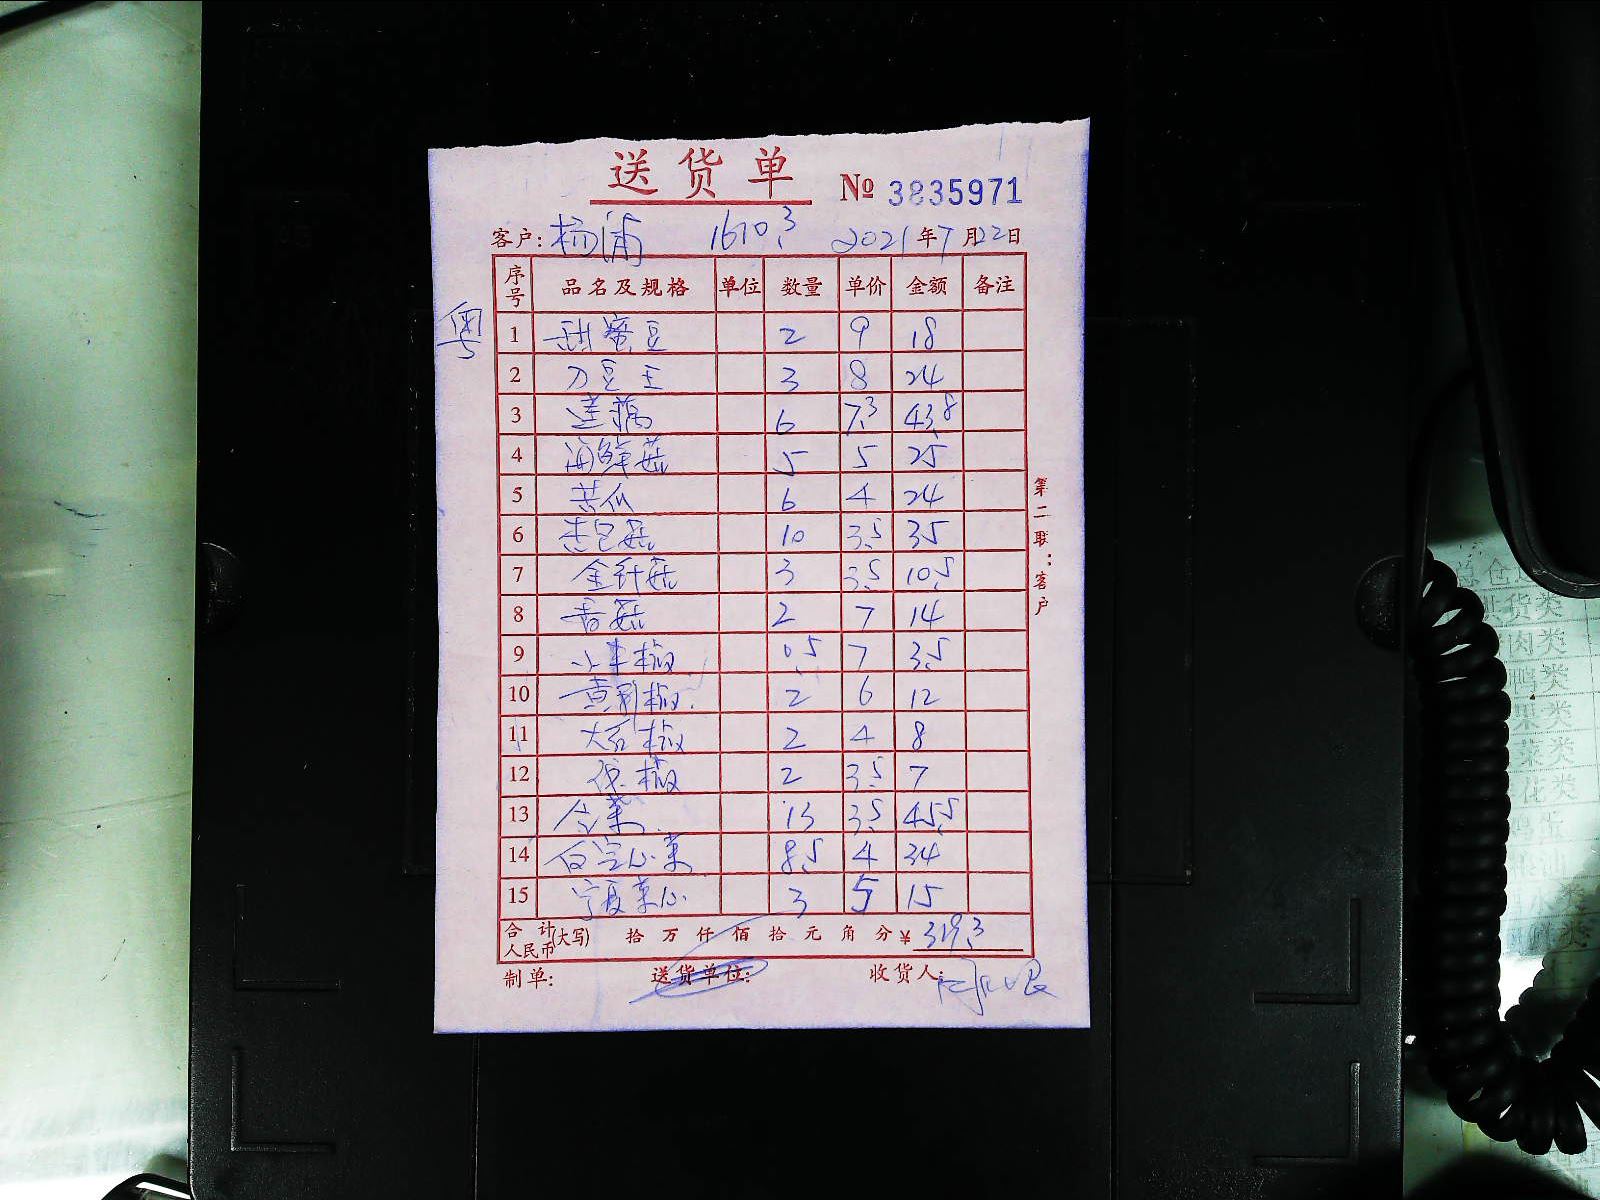 送货单
№ 3835971
客户: 杨浦 1670.3 2021年7月22日
粤
序号 品名及规格 单位 数量 单价 金额 备注
1 甜蜜豆 2 9 18
2 刀豆王 3 8 24
3 莲藕 6 7.3 43.8
4 海鲜菇 5 5 25
5 苦瓜 6 4 24
6 杏包菇 10 3.5 35
7 金针菇 3 3.5 10.5
8 香菇 2 7 14
9 小米椒 0.5 7 3.5
10 黄彩椒 2 6 12
11 大红椒 2 4 8
12 椒 2 3.5 7
13 13 3.5 45.5
14 白空心菜 8.5 4 34
15 宁夏菜心 3 5 15
合计人民币(大写) 拾 万 仟 佰 拾 元 角 分 ¥ 319.3
制单: 送货单位: 收货人:
第二联:客户
总仓
供货类
肉类
鸭类
果类
菜类